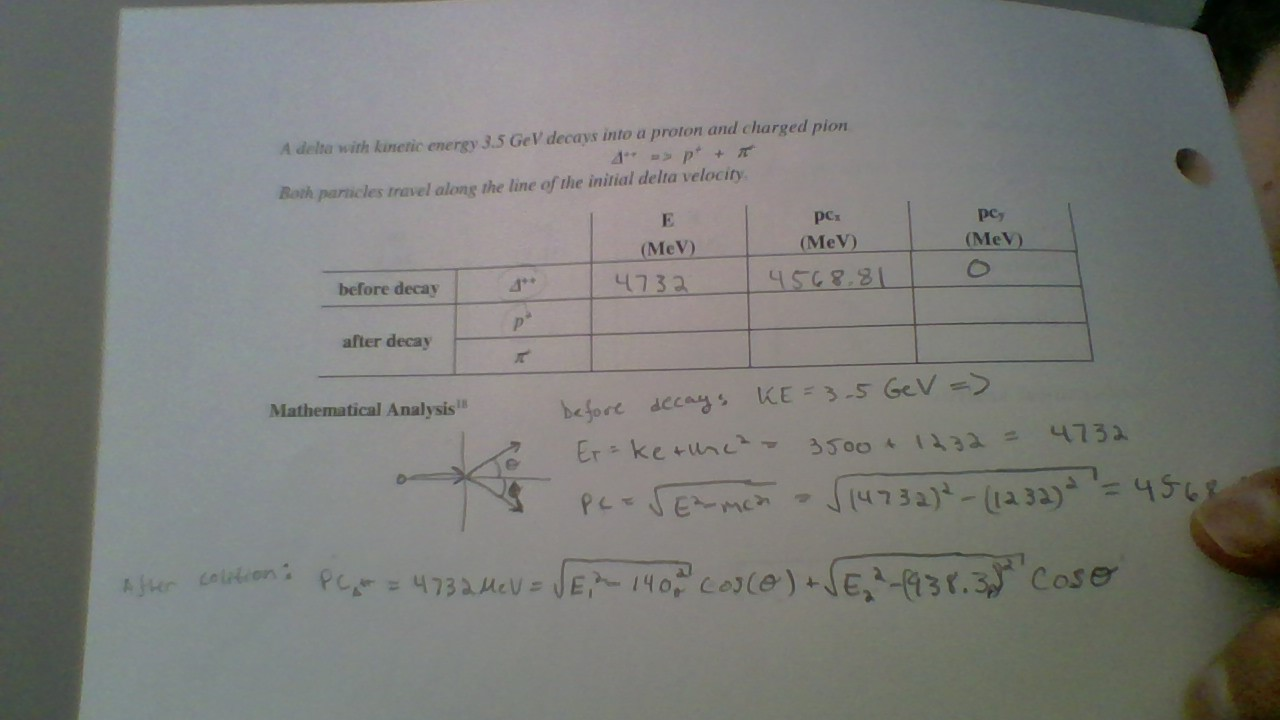 A delta with kinetic energy 3.5 GeV decays into a proton and charged pion
Δ⁺⁺ => p⁺ + π
Both particles travel along the line of the initial delta velocity.
E (MeV) pcₓ (MeV) pcᵧ (MeV)
before decay Δ⁺⁺ 4732 4568.81 0
after decay p⁺
π
Mathematical Analysis¹⁸
before decay: KE = 3.5 GeV =>
E_T = ke + mc² = 3500 + 1232 = 4732
PC = √(E² - mc²) = √((4732)² - (1232)²) = 4568
θ
After PC_Δ = 4732 MeV = √(E₁² - 140²) cos(θ) + √(E₂² - (938.3)²) cosθ